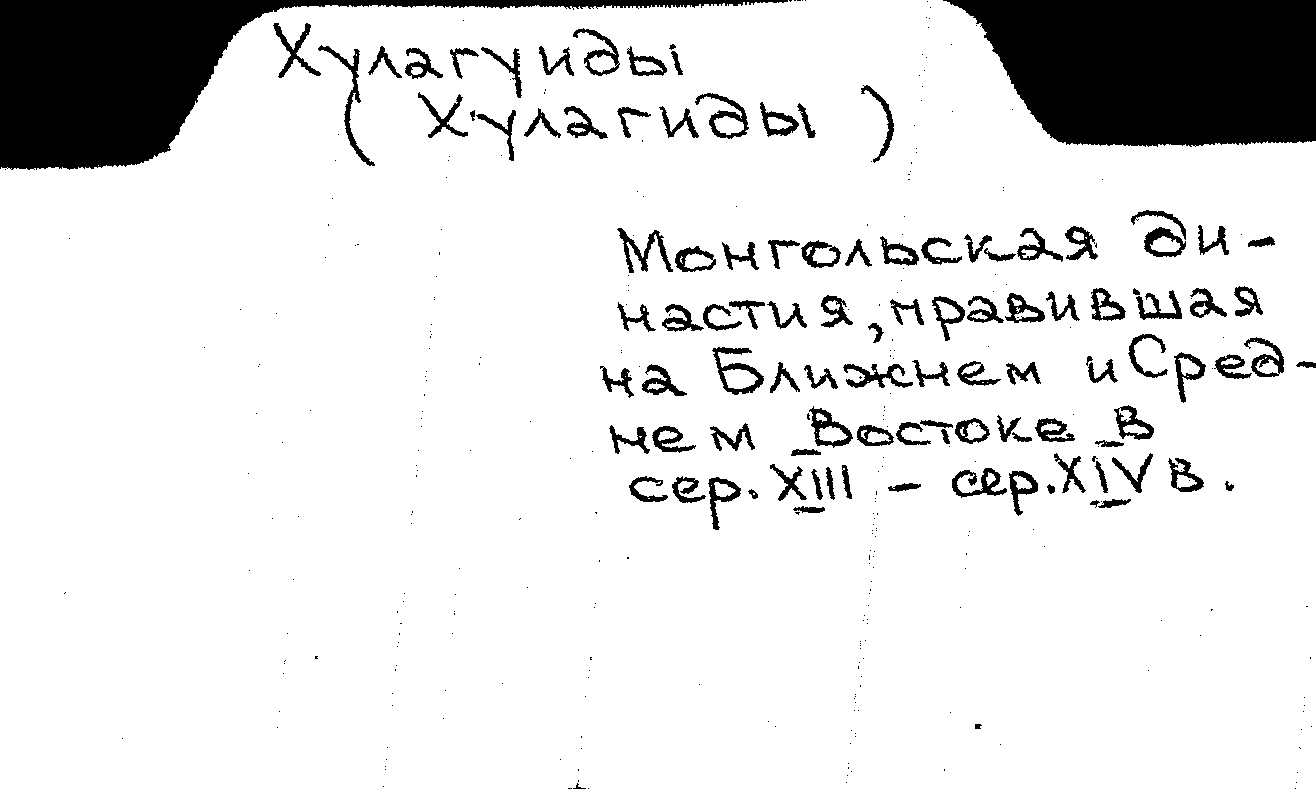 Хулагуиды
( Хулагиды )
Монгольская ди-
настия, правившая
на Ближнем и Сред-
нем Востоке в
сер. XIII - сер. XIV в.